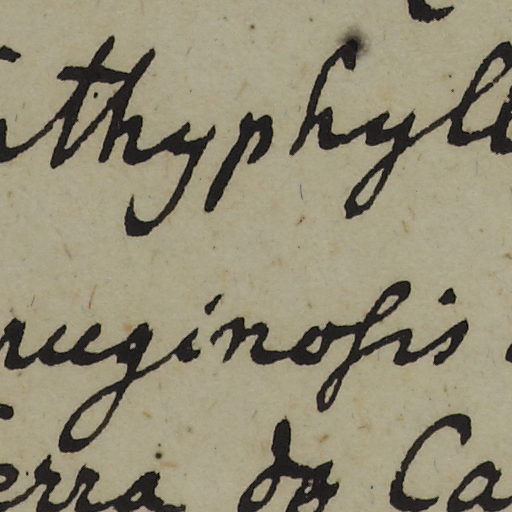 ithyphyll
ruginosis
erra da Ca